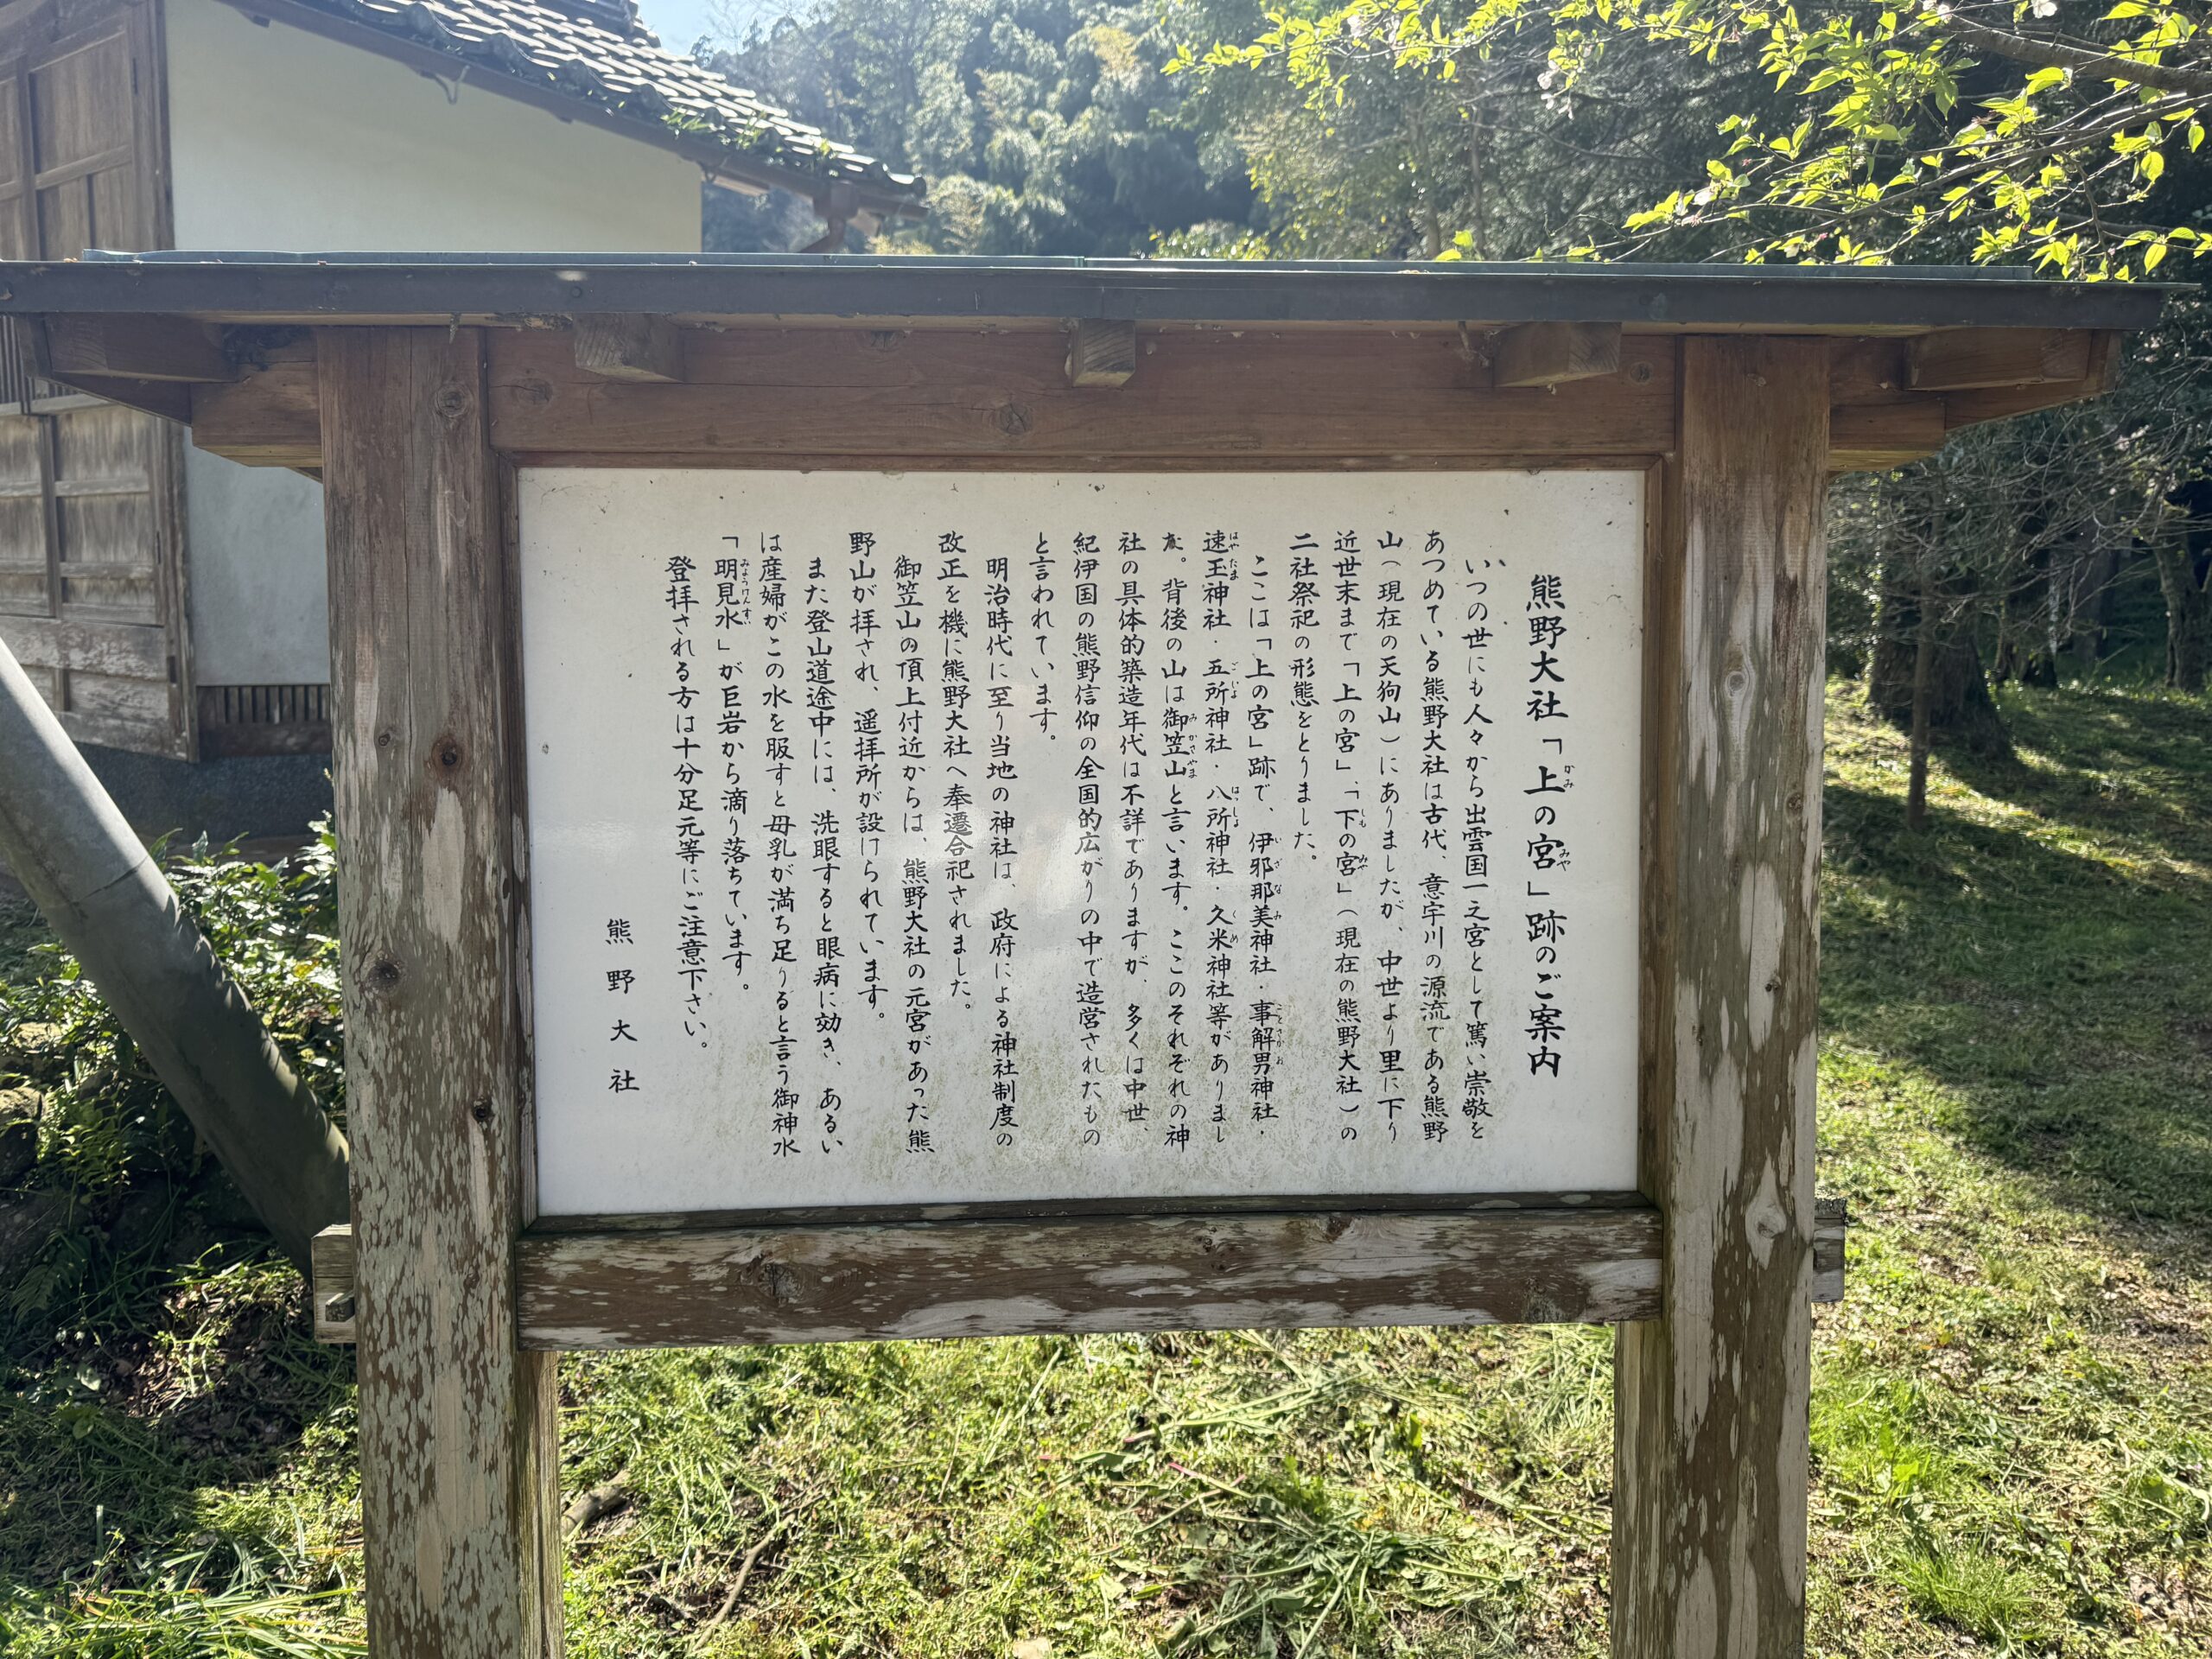 熊野大社「上の宮」跡のご案内
いつの世にも人々から出雲国一之宮として篤い崇敬を
あつめている熊野大社は古代、意宇川の源流である熊野
山(現在の天狗山)にありましたが、中世より里に下り
近世末まで「上の宮」、「下の宮」(現在の熊野大社)の
二社祭祀の形態をとりました。
ここは「上の宮」跡で、伊邪那美神社・事解男神社・
速玉神社・五所神社・八所神社・久米神社等がありまし
た。背後の山は御笠山と言います。ここのそれぞれの神
社の具体的築造年代は不詳でありますが、多くは中世、
紀伊国の熊野信仰の全国的広がりの中で造営されたもの
と言われています。
明治時代に至り当地の神社は、政府による神社制度の
改正を機に熊野大社へ奉遷合祀されました。
御笠山の頂上付近からは、熊野大社の元宮があった熊
野山が拝され、遥拝所が設けられています。
また登山道途中には、洗眼すると眼病に効き、あるい
は産婦がこの水を服すと母乳が満ち足りると言う御神水
「明見水」が巨岩から滴り落ちています。
登拝される方は十分足元等にご注意下さい。
熊野大社